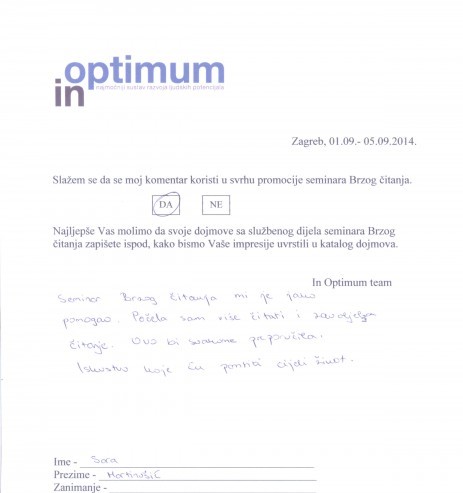 in optimum
najmoćniji sustav razvoja ljudskih potencijala
Zagreb, 01.09.- 05.09.2014.
Slažem se da se moj komentar koristi u svrhu promocije seminara Brzog čitanja.
DA NE
Najljepše Vas molimo da svoje dojmove sa službenog dijela seminara Brzog
čitanja zapišete ispod, kako bismo Vaše impresije uvrstili u katalog dojmova.
In Optimum team
Seminar Brzog čitanja mi je jako
pomogao. Počela sam više čitati i zavoljela
čitanje. Ovo bi svakome preporučila.
Iskustvo koje ću pamtiti cijeli život.
Ime - Sara
Prezime - Martinušić
Zanimanje -